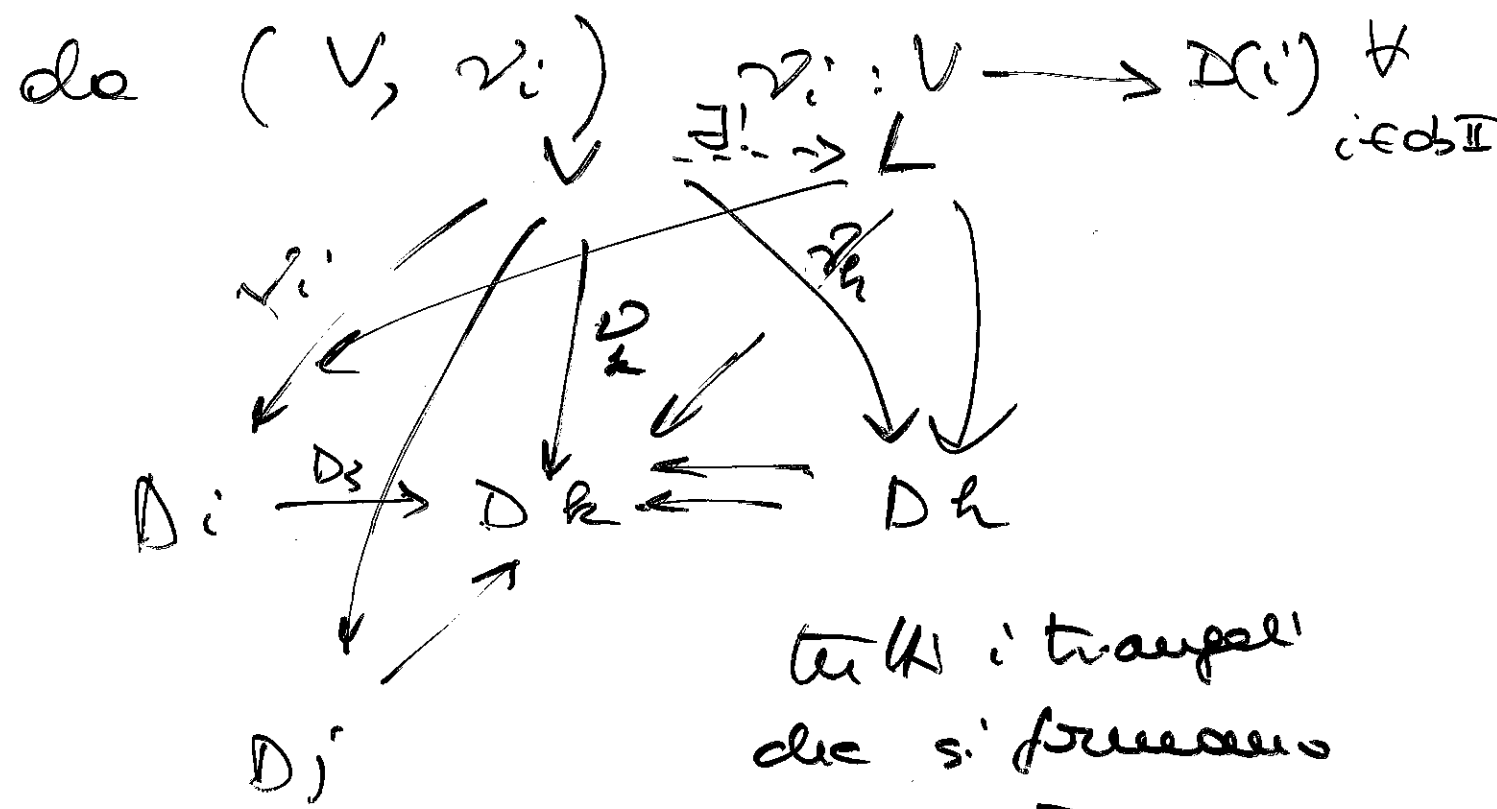 da (V, νi) νi : V → D(i) ∀
i ∈ ob 𝕀
V ∃! L
νi νk νh
Di D3 Dk Dh
tutti i triangoli
Dj che si formano